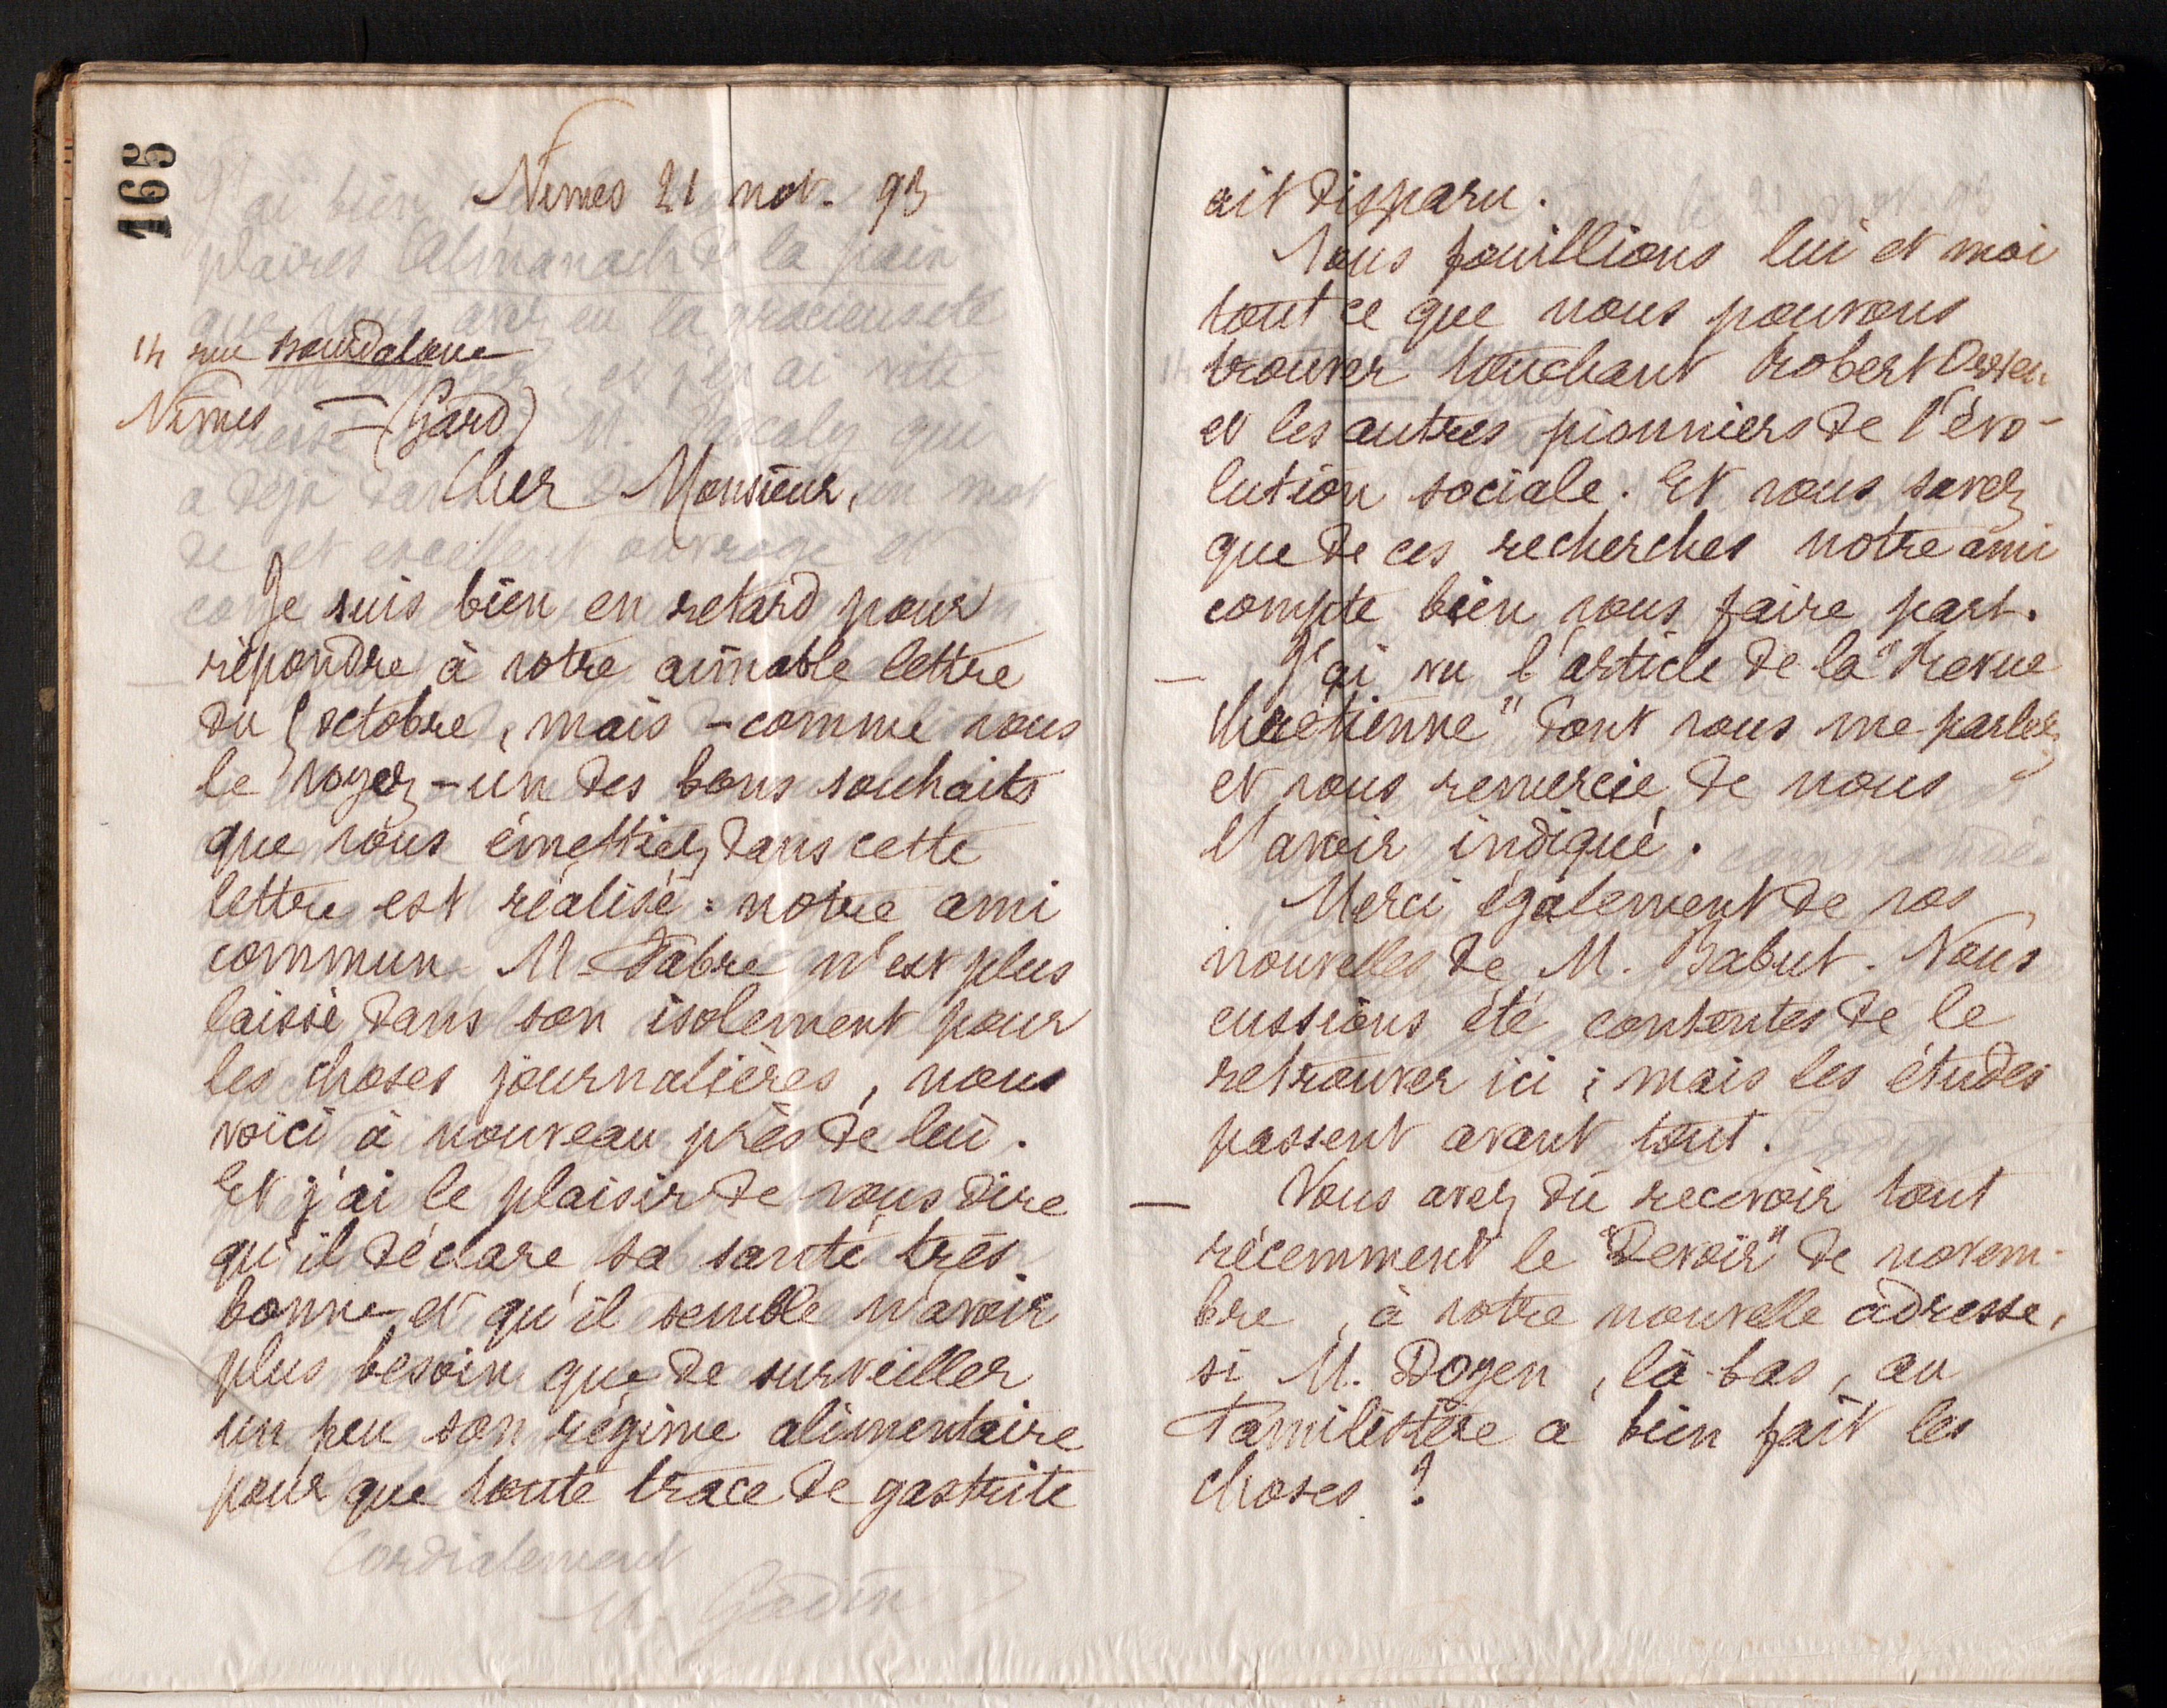 165
Nîmes 21 nov. 93
14 rue Bourdaloue
Nîmes - (Gard)
Cher Monsieur,
Je suis bien en retard pour
répondre à votre aimable lettre
du octobre, mais - comme vous
le voyez - un des bons souhaits
que vous émettiez dans cette
lettre est réalisé : notre ami
commun M. Fabre n'est plus
laissé dans son isolement pour
les choses journalières, nous
voici à nouveau près de lui.
Et j'ai le plaisir de vous dire
qu'il déclare sa santé très
bonne et qu'il semble n'avoir
plus besoin que de surveiller
un peu son régime alimentaire
pour que toute trace de gastrite
Cordialement
M. Godin
ait disparu.
Nous fouillions lui et moi
tout ce que nous pouvons
trouver touchant Robert Owen
et les autres pionniers de l'évo-
lution sociale. Et vous savez
que de ces recherches notre ami
compte bien vous faire part.
— J'ai vu l'article de la "Revue
chrétienne" dont vous me parlez
et vous remercie de nous
l'avoir indiqué.
Merci également de vos
nouvelles de M. Babut. Nous
eussions été contentes de le
retrouver ici ; mais les études
passent avant tout.
— Vous avez dû recevoir tout
récemment le "Devoir" de novem-
bre, à votre nouvelle adresse,
si M. Doyen, là-bas, au
Familistère a bien fait les
choses ?